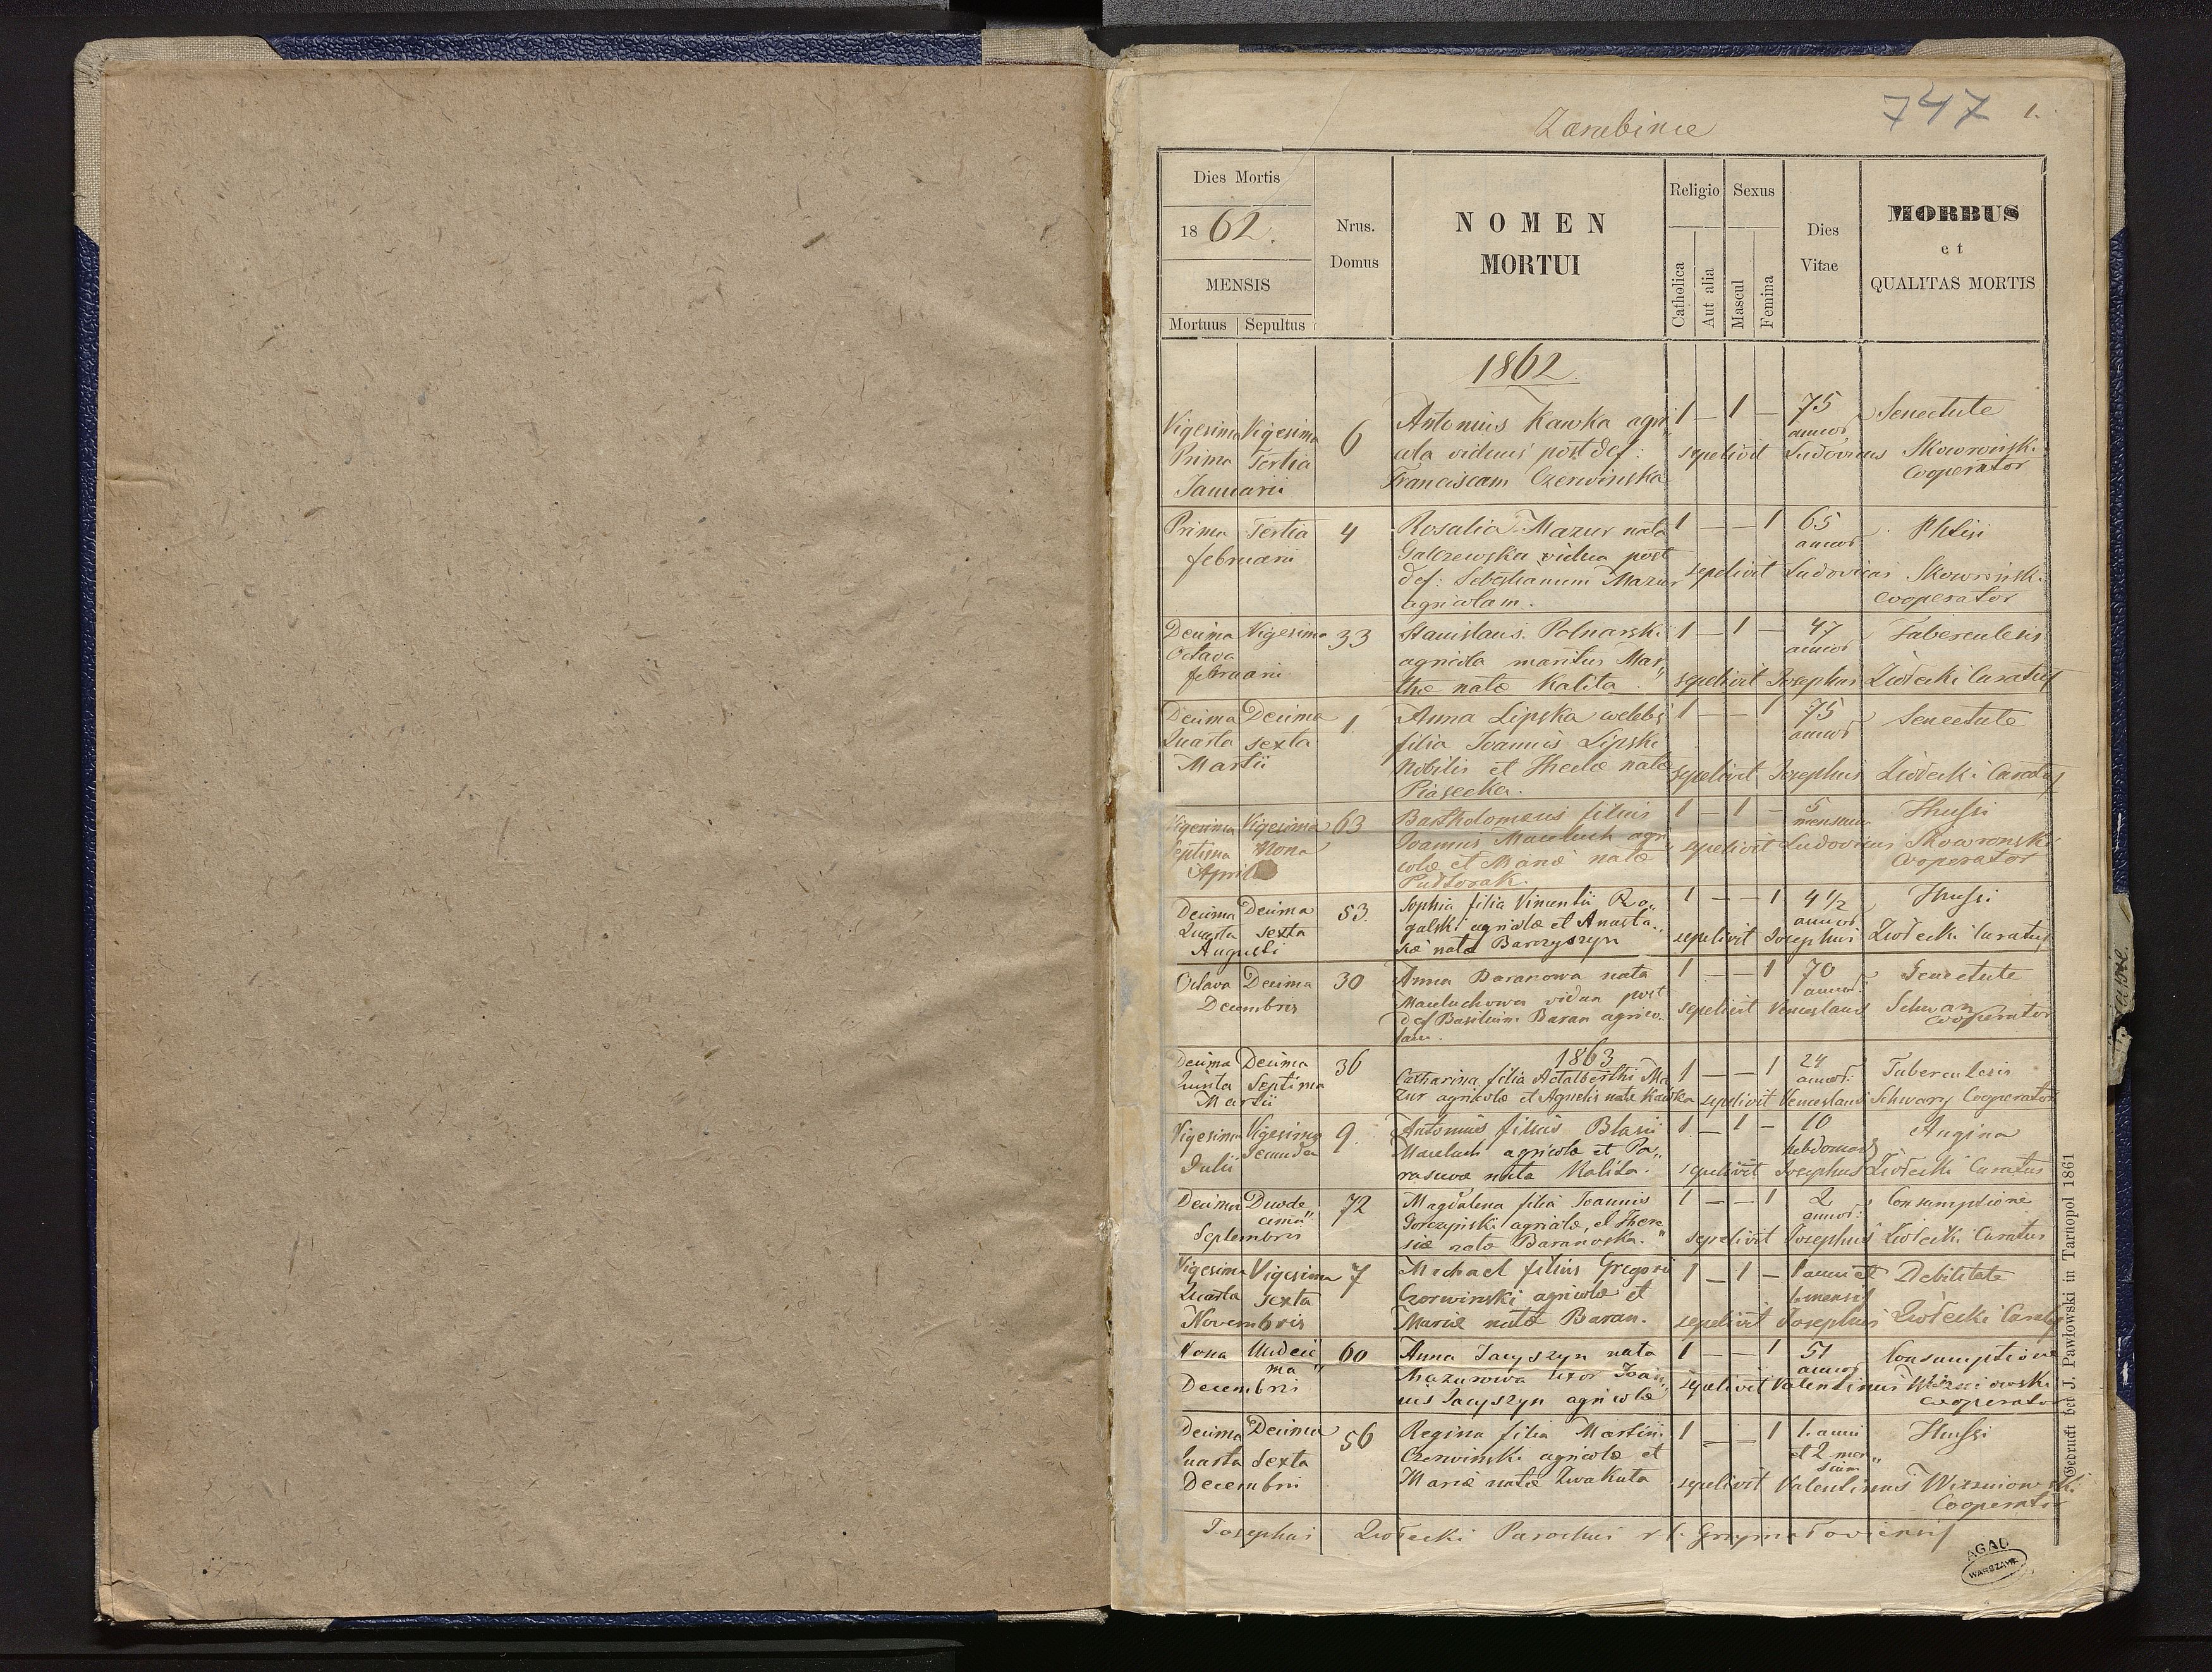 747 1.
Zarubince
Dies Mortis
1862.
MENSIS
Mortuus | Sepultus
Nrus.
Domus
NOMEN
MORTUI
Religio
Catholica
Aut alia
Sexus
Mascul
Femina
Dies
Vitae
MORBUS
et
QUALITAS MORTIS
1862
Vigesima Vigesima 6 Antonius Kawka agri 1 — 1 — 75 Senectute
Prima Tertia cola viduus post def: annor
Januarii Franciscam Czerwinska sepelivit Ludovicus Skowroński
Cooperator
Prima Tertia 4 Rosalia Mazur nata 1 — — 1 65 Phtisi
februarii Galczewska vidua post annor
def: Sebastianum Mazur sepelivit Ludovicus Skowrońsk.
agricolam. Cooperator
Decima Vigesima 33 Stanislaus Polnarski 1 — 1 — 47 Tuberculesis
Octava agricola maritus Mar„ annor
februarii thae natae Kalita. sepelivit Josephus Źiołecki Curatus
Decima Decima 1. Anna Lipska celebs 1 — — 1 75 Senectute
Quarta sexta filia Joannis Lipski annor
Martii Nobilis et Theclae natae sepelivit Josephus Źiołecki Curatus
Piasecka.
Vigesima Vigesima 63 Bartholomeus filius 1 — 1 — 5 Thussi
Septima Nona Joannis Maculuch agri mensium
April colae et Mariae natae sepelivit Ludovicus Skowronski
Pudłorak. Cooperator
Decima Decima 53. Sophia filia Vincentii Ro„ 1 — — 1 4 1/2 Thussi
Quarta sexta galski agricolae et Anasta„ annor
Augusti siae natae Barczyszyn sepelivit Josephus Źiołecki Curatus
Octava Decima 30 Anna Baranowa nata 1 — — 1 70 Senectute
Decembris Maculuchowa vidua post annor
def Basilium Baran agrico„ sepelivit Venceslaus Schwarz
lam. Cooperator
1863
Decima Decima 36 Catharina filia Adalberthi Ma 1 — — 1 24 Tuberculesis
Quinta Septima zur agricolae et Agnetis natae Kawka annor:
Martii sepelivit Venceslaus Schwarz Cooperator
Vigesima Vigesima 9. Antonius filius Blasii 1 — 1 — 10 Angina
Secunda Maculuch agricolae et Pa„ hebdomad
Julii rasuvae nata Kalita. sepelivit Josephus Źiołecki Curatus
Decima Duode 72 Magdalena filia Joannis 1 — — 1 2 Consumptione
cima Gorczyński agricolae, et There„ annor:
Septembris siae natae Baranoska. sepelivit Josephus Ziołecki Curatus
Vigesima Vigesima 7 Michael filius Gregorii 1 — 1 — 1 anni et Debilitate
Quarta sexta Czerwinski agricolae et 1. mensis
Novembris Mariae natae Baran. sepelivit Josephus Ziołecki Curatus
Nona Undeci 60 Anna Jacyszyn nata 1 — — 1 51 Consumptione
ma Mazurowa uxor Joan„ annor
Decembris nis Jacyszyn agricolae sepelivit Valentinus Wiszniowski
Cooperator
Decima Decima 56 Regina filia Martini 1 — — 1 1. anni Thussi
Quarta Sexta Czerwinski agricolae et et 2 men„
sium
Decembris Mariae natae Zwakuta sepelivit Valentinus Wiszniowski
Cooperator
Josephus Ziołecki Parochus r. l. Grzymałoviensis
Gedruckt bei J. Pawłowski in Tarnopol 1861
AGAD
WARSZAWA